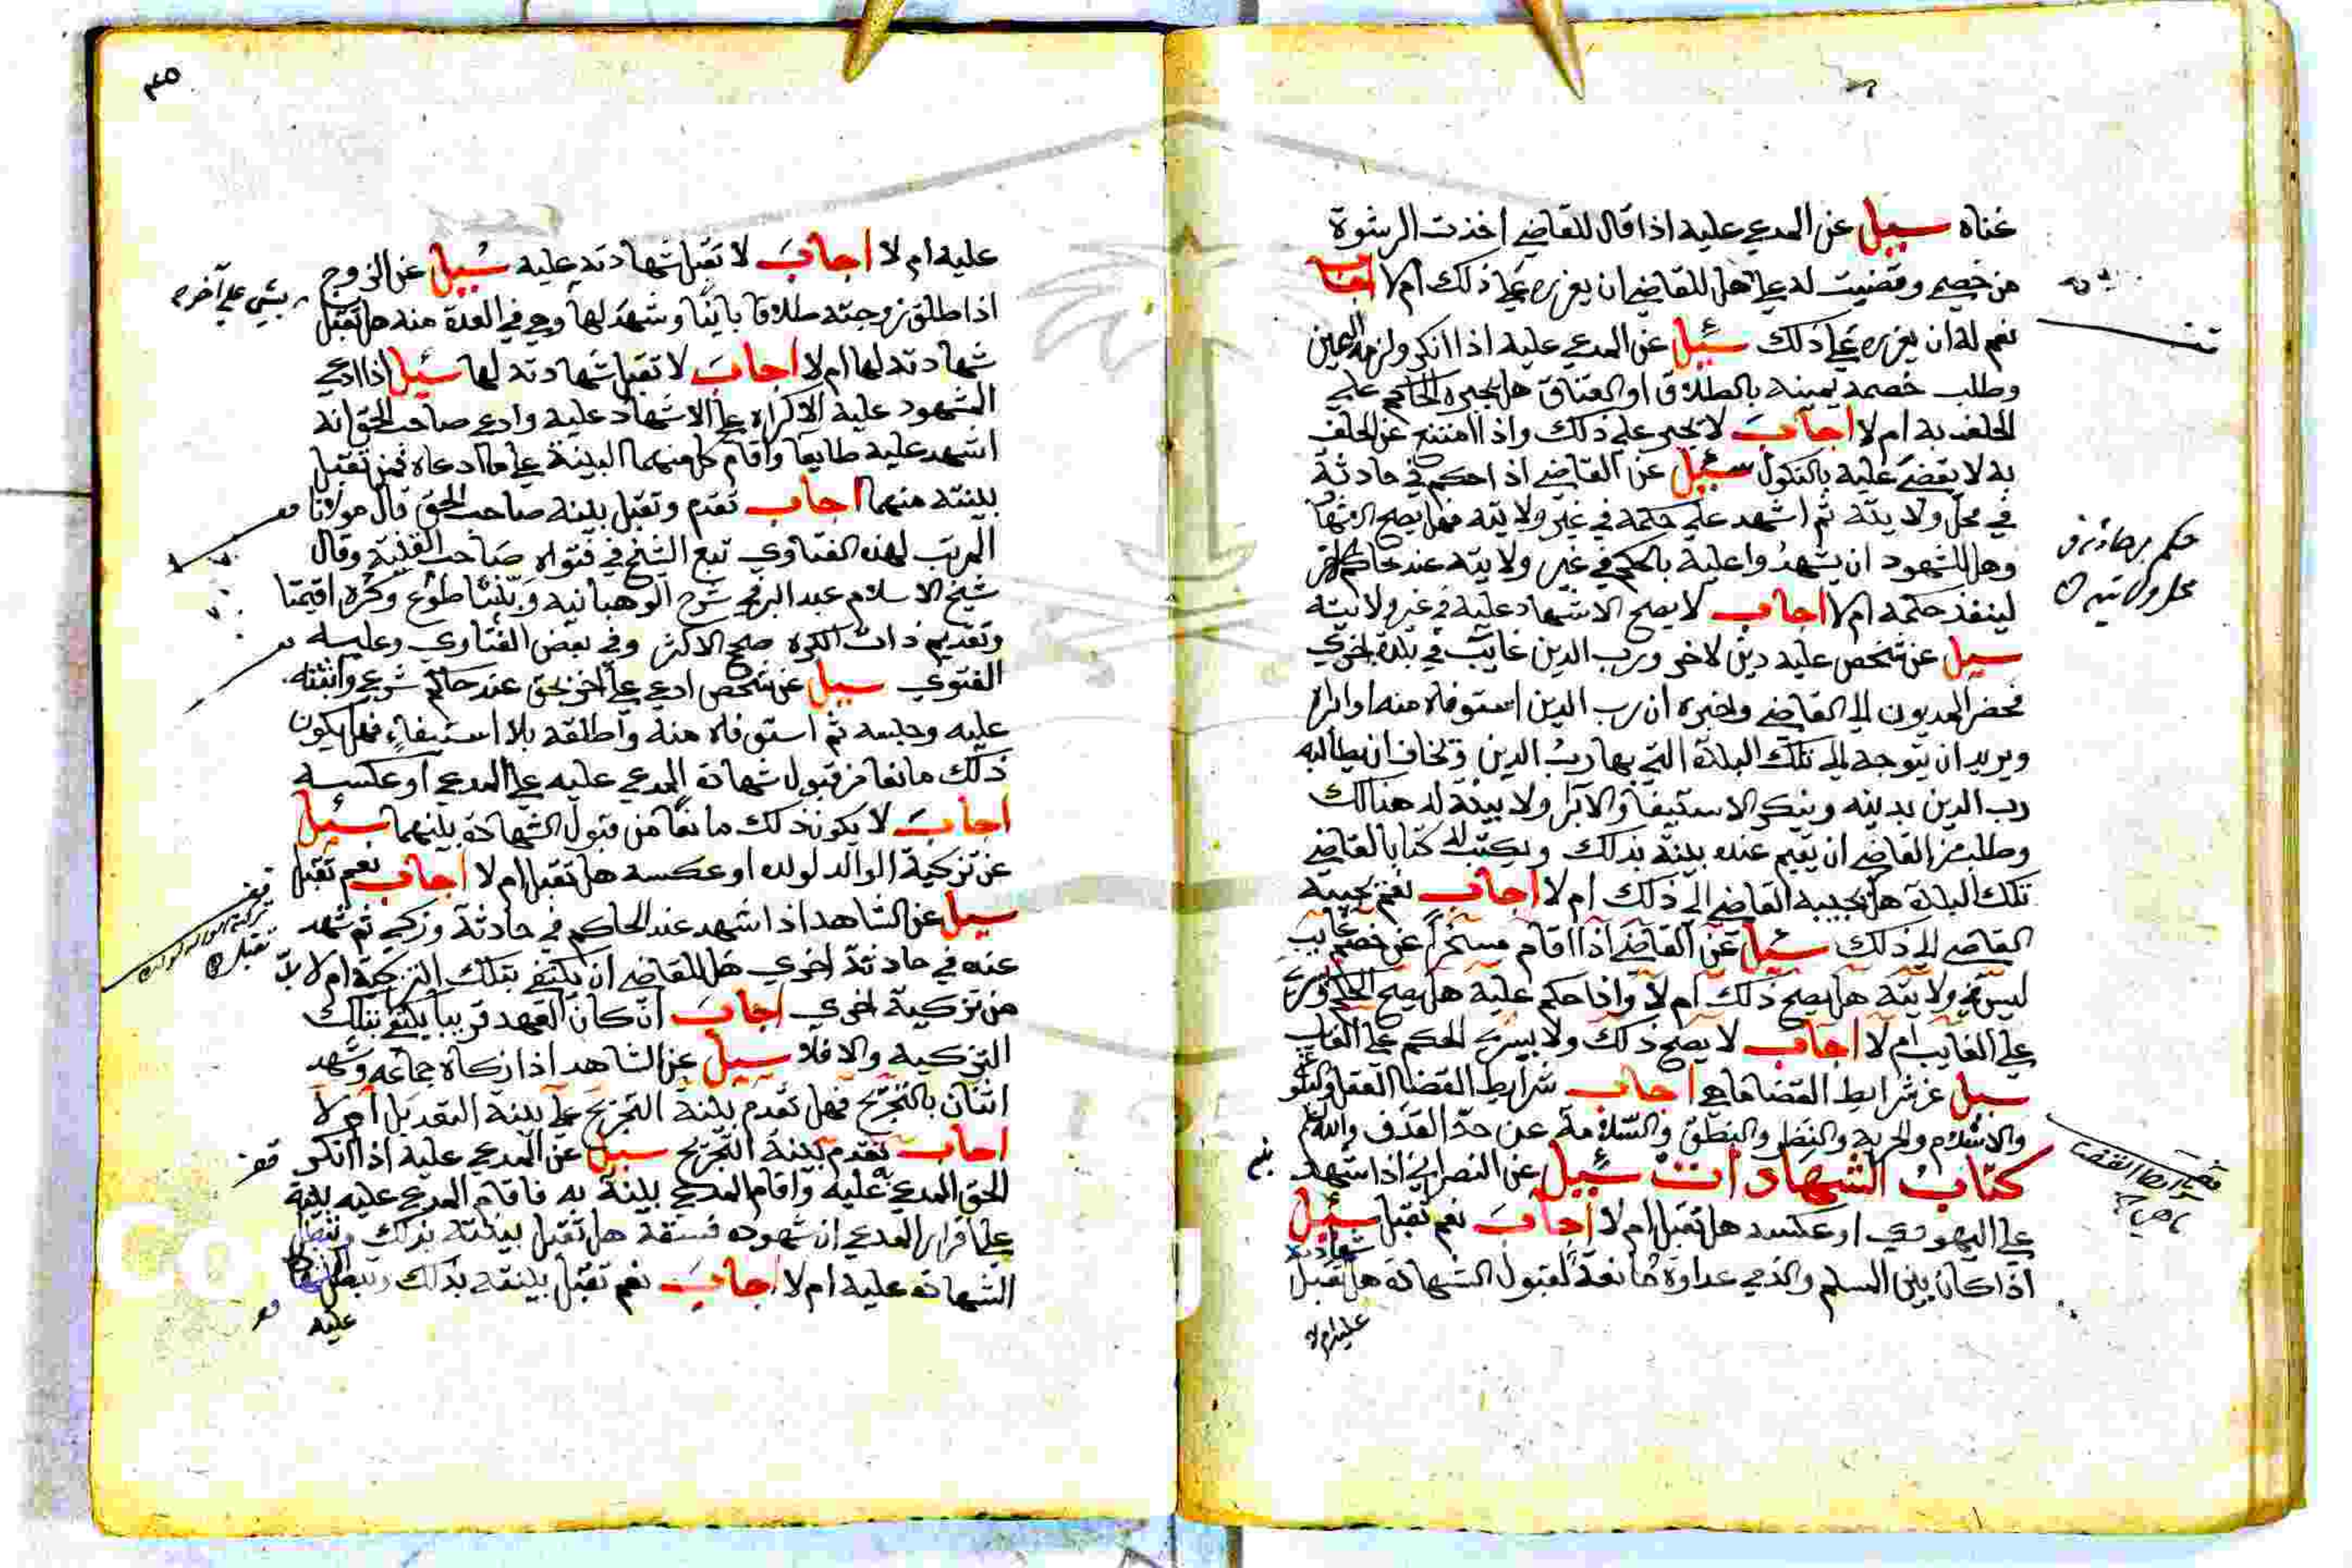 غناه سيل عن المدعي عليه اذا قال للقاضي اخذت الرشوة
من خصمي وقضيت له علي هل للقاضي ان يعزره علي ذلك ام لا اجاب
نعم له ان يعزره علي ذلك سئيل عن المدعي عليه اذا انكر ولزمه اليمين
وطلب خصمه يمينه بالطلاق او العتاق هل يجبره الحاكم علي
الحلف به ام لا اجاب لا يجبر علي ذلك واذا امتنع عن الحلف
به لا يقضي عليه بالنكول سئيل عن القاضي اذا حكم في حادثة
في محل ولايته ثم اشهد علي حكمه في غير ولايته فهل يصح الاشهاد
وهل للشهود ان يشهدوا عليه بالحكم في غير ولايته عند حاكم اخر
لينفذ حكمه ام لا اجاب لا يصح الاشهاد عليه في غير ولايته
سيل عن شخص عليه دين لاخر ورب الدين غايب في بلدة اخري
فحضر المديون الي القاضي واخبره ان رب الدين استوفاه منه او ابراه
ويريد ان يتوجه الي تلك البلدة التي بها رب الدين ويخاف ان يطالبه
رب الدين بدينه وينكر الاستيفا والابرا ولا بينة له هنالك
وطلب من القاضي ان يقيم عنده بينة بذلك ويكتب له كتابا لقاضي
تلك البلدة هل يجيبه القاضي الي ذلك ام لا اجاب نعم يجيبه
القاضي الي ذلك سئيل عن القاضي اذا اقام مسخرا عن خصم غايب
ليس في ولايته هل يصح ذلك ام لا واذا حكم عليه هل يصح الحكم ويسري
علي الغايب ام لا اجاب لا يصح ذلك ولا يسري الحكم علي الغايب
سيل عن شرايط القضا ما هي اجاب شرايط القضا العقل والبلوغ
والاسلام والحرية والبصر والنطق والسلامة عن حد القذف والله اعلم
كتاب الشهادات سئيل عن النصراني اذا شهد
علي اليهودي او عكسه هل تقبل ام لا اجاب نعم تقبل سئيل
اذا كان بين المسلم والذمي عداوة مانعة لقبول الشهادة هل تقبل شهادته
عليه ام لا
حكم بحادثة في
محل ولايته
شرايط القضا
ما هي
عليه ام لا اجاب لا تقبل شهادته عليه سئيل عن الزوج
اذا طلق زوجته طلاقا باينا وشهد لها وهي في العدة منه هل تقبل
شهادته لها ام لا اجاب لا تقبل شهادته لها سئيل اذا ادعي
المشهود عليه الاكراه علي الاشهاد عليه وادعي صاحب الحق انه
اشهد عليه طايعا واقام كل منهما البينة علي ما ادعاه فمن تقبل
بينته منهما اجاب تقدم وتقبل بينة صاحب الحق قال مولانا
المرتب لهذه الفتاوي تبع الشيخ في فتواه صاحب القنية وقال
شيخ الاسلام عبد البر في شرح الوهبانية وبينتا طوع وكره اقيمتا
وتقديم ذات الكره صحح الاكثر وفي بعض الفتاوي وعليه
الفتوي سيل عن شخص ادعي علي اخر بحق عند حاكم شرعي واثبته
عليه وحبسه ثم استوفاه منه واطلقه بلا استيفاء فهل يكون
ذلك مانعا من قبول شهادة المدعي عليه علي المدعي او عكسه
اجاب لا يكون ذلك مانعا من قبول الشهادة بينهما سئيل
عن تزكية الوالد لولده او عكسه هل تقبل ام لا اجاب نعم تقبل
سيل عن الشاهد اذا شهد عند الحاكم في حادثة وزكي ثم شهد
عنده في حادثة اخري هل للقاضي ان يكتفي بتلك التزكية ام لا بد
من تزكية اخري اجاب ان كان العهد قريبا يكتفي بتلك
التزكية والا فلا سيل عن الشاهد اذا زكاه جماعة وشهد
اثنان بالتجريح فهل تقدم بينة التجريح علي بينة التعديل ام لا
اجاب تقدم بينة التجريح سيل عن المدعي عليه اذا انكر
الحق المدعي به عليه واقام المدعي بينة به فاقام المدعي عليه بينة
علي اقرار المدعي ان شهوده فسقة هل تقبل بينته بذلك وتبطل
الشهادة عليه ام لا اجاب نعم تقبل بينته بذلك وتبطل الشهادة
عليه
يشي علي آخره
تزكية الوالد لولده
تقبل